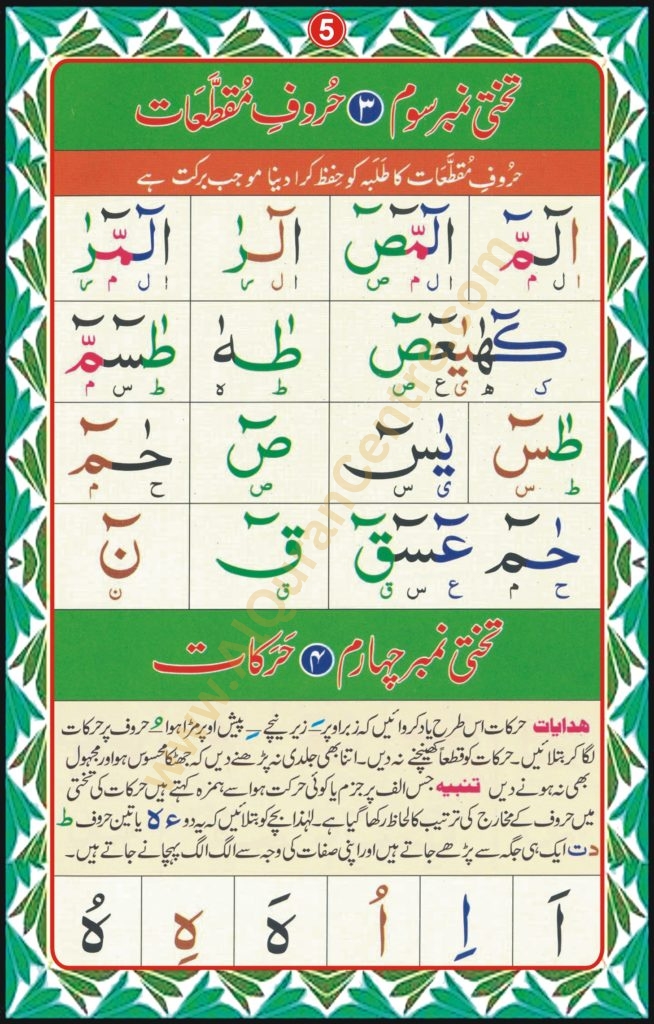 5
تختی نمبر سوم ۳ حُروفِ مُقطَّعَات
حُروفِ مُقطَّعَات کا طَلَبَہ کو حِفظ کرا دینا موجب برکت ہے
الٓمّٓ الٓمّٓصٓ الٓرٰ الٓمّٓرٰ
ا ل م ا ل م ص ا ل ر ا ل م ر
كٓهٰيٰعٓصٓ طٰهٰ طٰسٓمّٓ
ک ھ ی ع ص ط ہ ط س م
طٰسٓ يٰسٓ صٓ حٰمٓ
ط س ی س ص ح م
حٰمٓ عٓسٓقٓ قٓ نٓ
ح م ع س ق ق ن
تختی نمبر چہارم ۴ حَرَکات
ھدایات حرکات اس طرح یاد کروائیں کہ زبر اوپر ـَ زیر نیچے ـِ پیش اوپر مڑا ہوا ـُ حروف پر حرکات
لگا کر بتلائیں۔ حرکات کو قطعاً کھینچنے نہ دیں۔ اتنا بھی جلدی نہ پڑھنے دیں کہ جھٹکا محسوس ہو اور مجہول
بھی نہ ہونے دیں تنبیه جس الف پر جزم یا کوئی حرکت ہو اسے ہمزہ کہتے ہیں حرکات کی تختی
میں حروف کے مخارج کی ترتیب کا لحاظ رکھا گیا ہے۔ لہٰذا بچے کو بتلائیں کہ یہ دو ء ہ یا تین حروف ط
د ت ایک ہی جگہ سے پڑھے جاتے ہیں اور اپنی صفات کی وجہ سے الگ الگ پہچانے جاتے ہیں۔
اَ اِ اُ هَ هِ هُ
www.AlQuranCentre.com